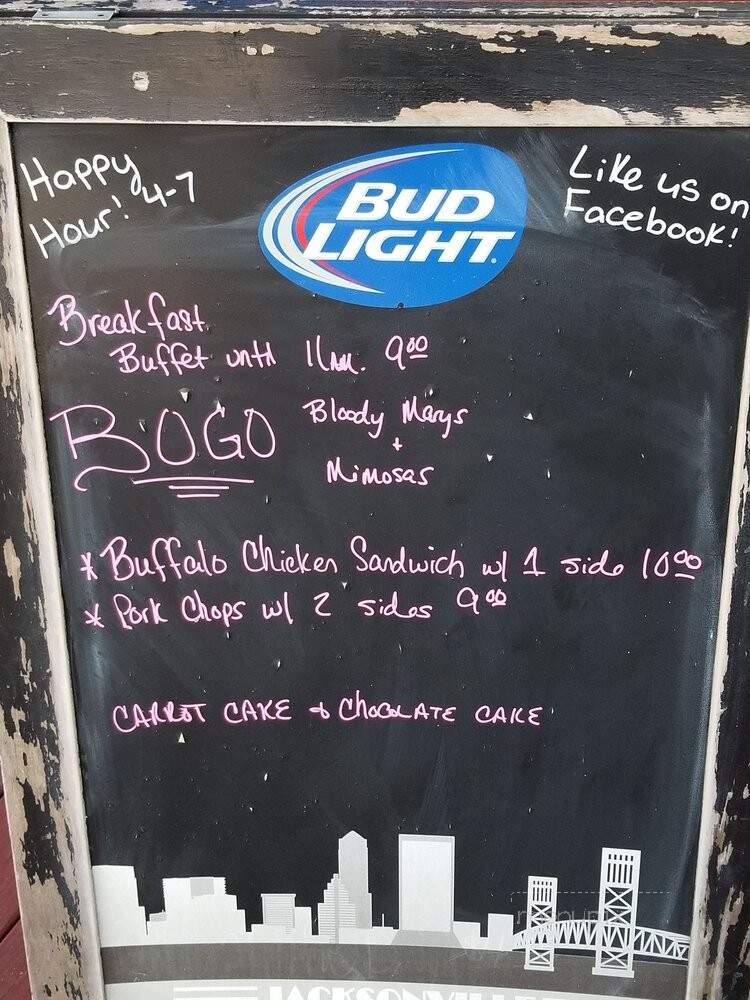 Happy
Hour! 4-7
BUD
LIGHT
Like us on
Facebook!
Breakfast
Buffet until 11am. 9.00
BOGO Bloody Marys
+
Mimosas
* Buffalo Chicken Sandwich w/ 1 side 10.00
* Pork Chops w/ 2 sides 9.00
CARROT CAKE & CHOCOLATE CAKE
JACKSONVILLE